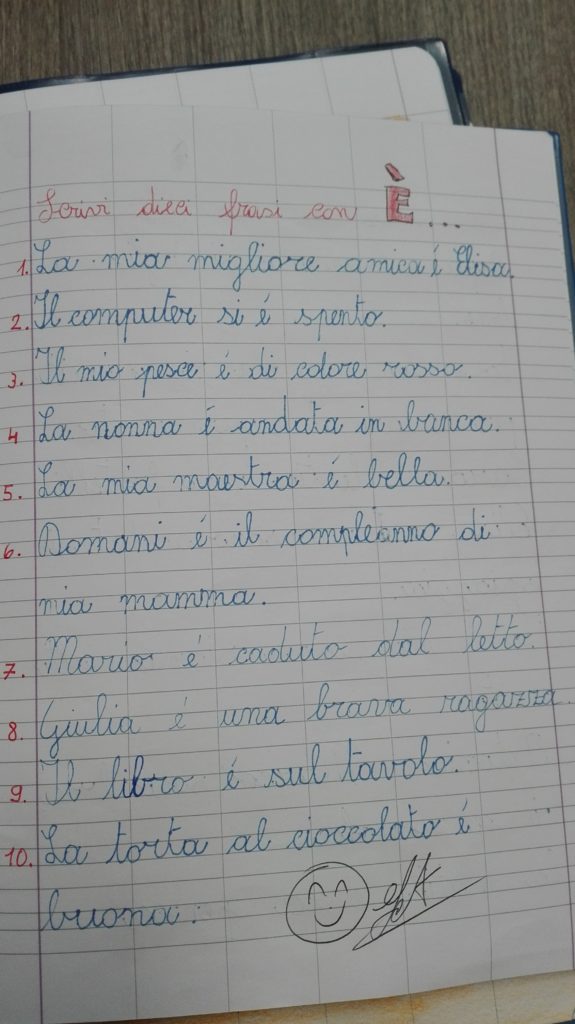 Scrivi dieci frasi con È...
1. La mia migliore amica é Elisa.
2. Il computer si é spento.
3. Il mio pesce é di colore rosso.
4 La nonna é andata in banca.
5. La mia maestra é bella.
6. Domani é il compleanno di
mia mamma.
7. Mario é caduto dal letto.
8. Giulia é una brava ragazza.
9. Il libro é sul tavolo.
10. La torta al cioccolato é
buona.